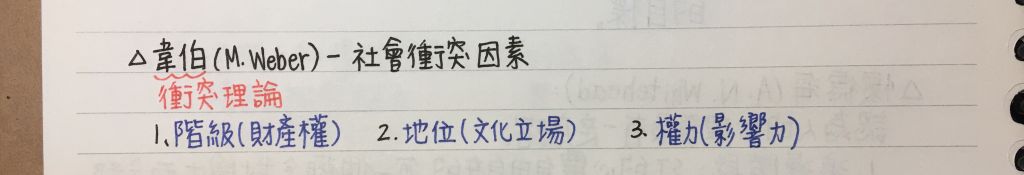 △韋伯(M.Weber)-社會衝突因素
衝突理論
1.階級(財產權) 2.地位(文化立場) 3.權力(影響力)